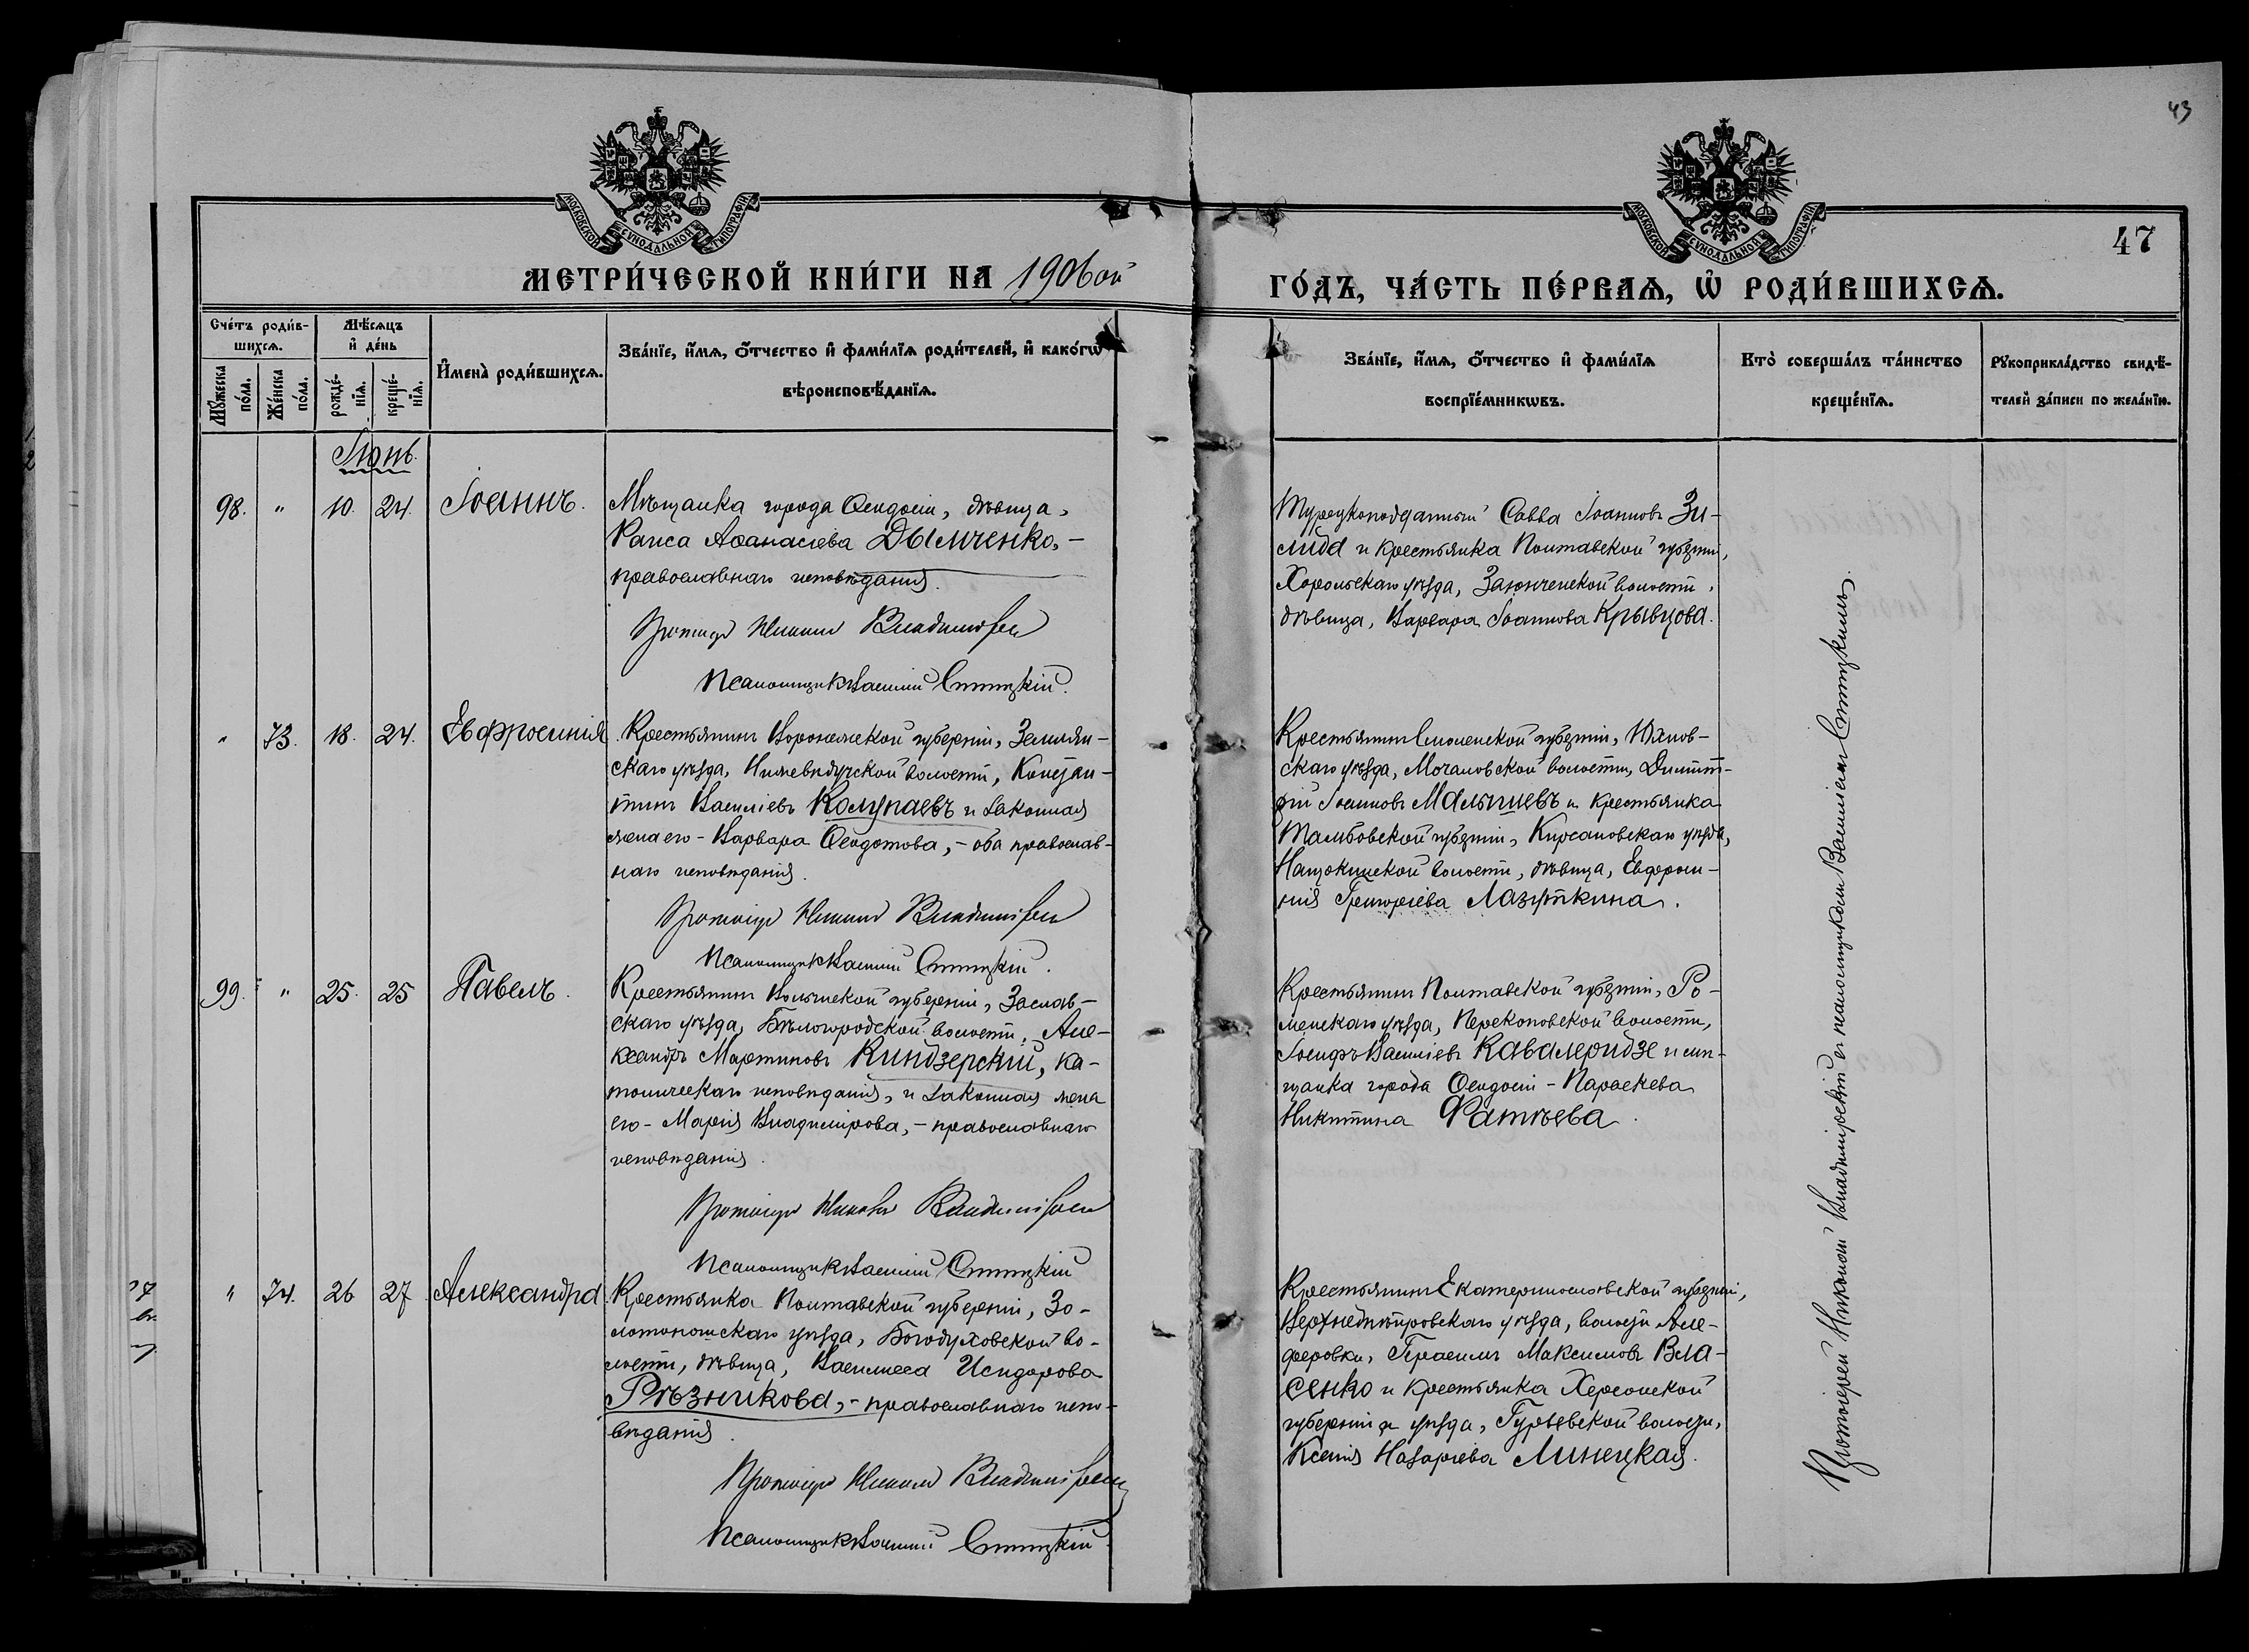 43
МОСКОВСКОЙ СѴНОДАЛЬНОЙ ТИПОГРАФІИ
МОСКОВСКОЙ СѴНОДАЛЬНОЙ ТИПОГРАФІИ
47
МЕТРИ́ЧЕСКОЙ КНИ́ГИ НА 1906ой
ГО́ДЪ, ЧА́СТЬ ПЕ́РВАѦ, Ѡ РОДИ́ВШИХСѦ.
Сче́тъ роди́в-
шихсѧ.
Мѣ́сѧцъ
и҆ де́нь
Мꙋ́жеска
по́ла.
Же́нска
по́ла.
рожде́-
нїѧ.
креще́-
нїѧ.
И҆мена̀ роди́вшихсѧ.
Зва́нїе, и҆́мѧ, о҆́тчество и҆ фами́лїѧ роди́телей, и҆ како́гѡ
вѣроисповѣ́данїѧ.
Зва́нїе, и҆́мѧ, о҆́тчество и҆ фами́лїѧ
воспрїе́мникѡвъ.
Кто̀ соверша́лъ та́инство
креще́нїѧ.
Рꙋкоприкла́дство свидѣ́-
телей за́писи по жела́нїю.
Іюнь.
98. " 10. 24. Іоаннъ.
Мѣщанка города Ѳеодосіи, дѣвица,
Раиса Аѳанасіева Дымченко,-
православнаго исповѣданія.
Протоіер Николай Владимірскій
Псаломщикъ Василій Ситицкій.
Турецкоподданный Савва Іоанновъ Зи-
лида и крестьянка Полтавской губерніи,
Хорольскаго уѣзда, волости,
дѣвица, Варвара Іоаннова Крывцова.
" 73. 18. 24. Евфросинія
Крестьянинъ Воронежской губерніи, Землян-
скаго уѣзда, Нижеведугской волости, Констан-
тинъ Василіевъ Колупаевъ и законная
жена его - Варвара Ѳеодотова,- оба православ-
наго исповѣданія.
Протоіер Николай Владимірскій
Псаломщикъ Василій Ситицкій.
Крестьянинъ Смоленской губерніи, Юхнов-
скаго уѣзда, Мочаловской волости, Димит-
рій Іоанновъ Мальцевъ и крестьянка
Тамбовской губерніи, Кирсановскаго уѣзда,
Нащокинской волости, дѣвица, Евфроси-
нія Григоріева Лазуткина.
99. " 25. 25 Павелъ.
Крестьянинъ Волынской губерніи, Заслав-
скаго уѣзда, Бѣлогородской волости, Але-
ксандръ Мартиновъ Киндзерскій, ка-
толическаго исповѣданія, и законная жена
его - Марія Владимірова,- православнаго
исповѣданія.
Протоіер Николай Владимірскій
Псаломщикъ Василій Ситицкій
Крестьянинъ Полтавской губерніи, Ро-
менскаго уѣзда, Перекоповской волости,
Іосифъ Василіевъ Кавалеридзе и мѣ-
щанка города Ѳеодосіи - Параскева
Никитина Фатѣева.
" 74. 26 27 Александра
Крестьянка Полтавской губерніи, Зо-
лотоношскаго уѣзда, Богодуховской во-
лости, дѣвица, Василисса Исидорова
Рѣзникова,- православнаго испо-
вѣданія.
Протоіер Николай Владимірскій
Псаломщикъ Василій Ситицкій.
Крестьянинъ Екатеринославской губерніи,
Верхнеднѣпровскаго уѣзда, волости Але-
феровки, Герасимъ Максимовъ Вла-
сенко и крестьянка Херсонской
губерніи и уѣзда, Гурьевской волости,
Ксенія Назаріева Линецкая.
Протоіерей Николай Владимірскій съ псаломщикомъ Василіемъ Ситицкимъ.